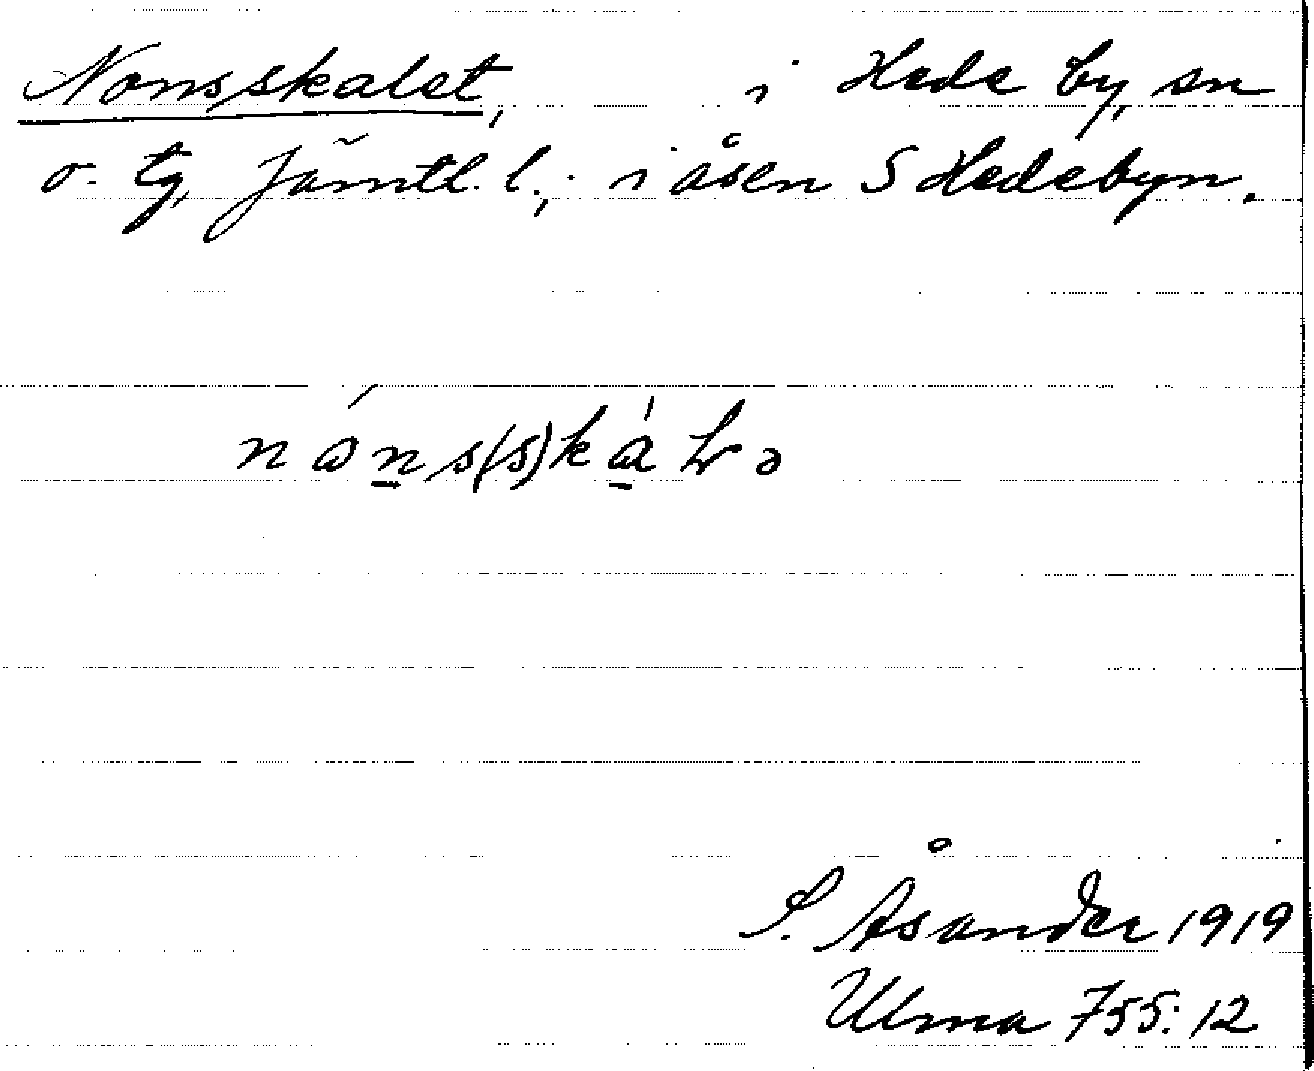 Nonsskalet, i Hede by, sn
o. tg, Jämtl. l.; i åsen S Hedebyn.
nóns(s)kàLə
S. Åsander 1919
Ulma 755:12